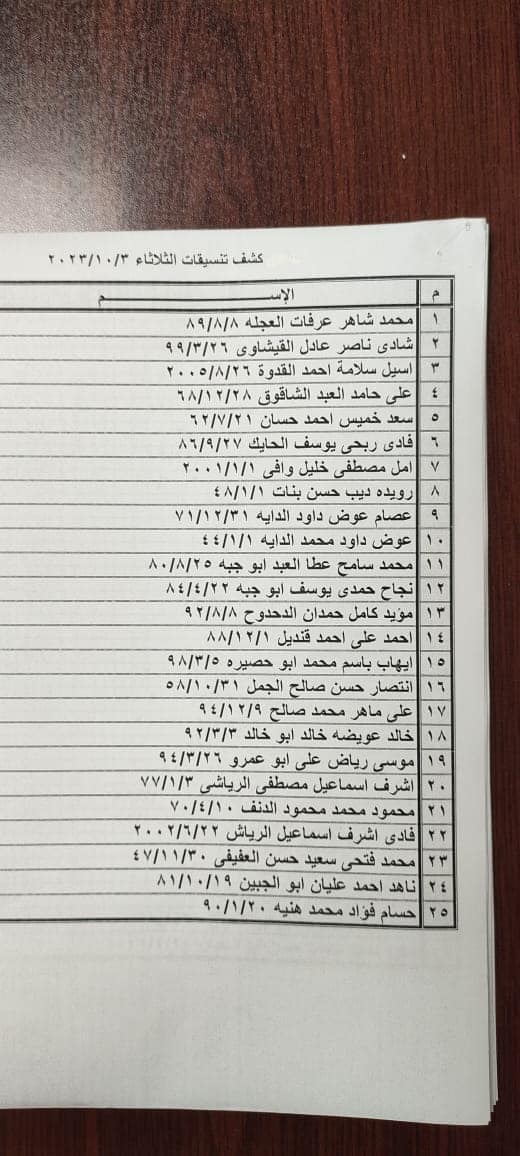 كشف تنسيقات الثلاثاء ٢٠٢٣/١٠/٣
م الإســــــــــم
١ محمد شاهر عرفات العجله ٨٩/٨/٨
٢ شادى ناصر عادل القيشاوى ٩٩/٣/٢٦
٣ اسيل سلامة احمد القدوة ٢٠٠٥/٨/٢٦
٤ على حامد العبد الشاقوق ٦٨/١٢/٢٨
٥ سعد خميس احمد حسان ٦٢/٧/٢١
٦ فادى ربحى يوسف الحايك ٨٦/٩/٢٧
٧ امل مصطفى خليل وافى ٢٠٠١/١/١
٨ رويده ديب حسن بنات ٤٨/١/١
٩ عصام عوض داود الدايه ٧١/١٢/٣١
١٠ عوض داود محمد الدايه ٤٤/١/١
١١ محمد سامح عطا العبد ابو جبه ٨٠/٨/٢٥
١٢ نجاح حمدى يوسف ابو جبه ٨٤/٤/٢٢
١٣ مؤيد كامل حمدان الدحدوح ٩٢/٨/٨
١٤ احمد على احمد قنديل ٨٨/١٢/١
١٥ ايهاب باسم محمد ابو حصيره ٩٨/٣/٥
١٦ انتصار حسن صالح الجمل ٥٨/١٠/٣١
١٧ على ماهر محمد صالح ٩٤/١٢/٩
١٨ خالد عويضه خالد ابو خالد ٩٢/٣/٣
١٩ موسى رياض على ابو عمرو ٩٤/٣/٢٦
٢٠ اشرف اسماعيل مصطفى الرياشى ٧٧/١/٣
٢١ محمود محمد محمود الدنف ٧٠/٤/١٠
٢٢ فادى اشرف اسماعيل الرياش ٢٠٠٢/٦/٢٢
٢٣ محمد فتحى سعيد حسن العفيفى ٤٧/١١/٣٠
٢٤ ناهد احمد عليان ابو الجبين ٨١/١٠/١٩
٢٥ حسام فؤاد محمد هنيه ٩٠/١/٢٠